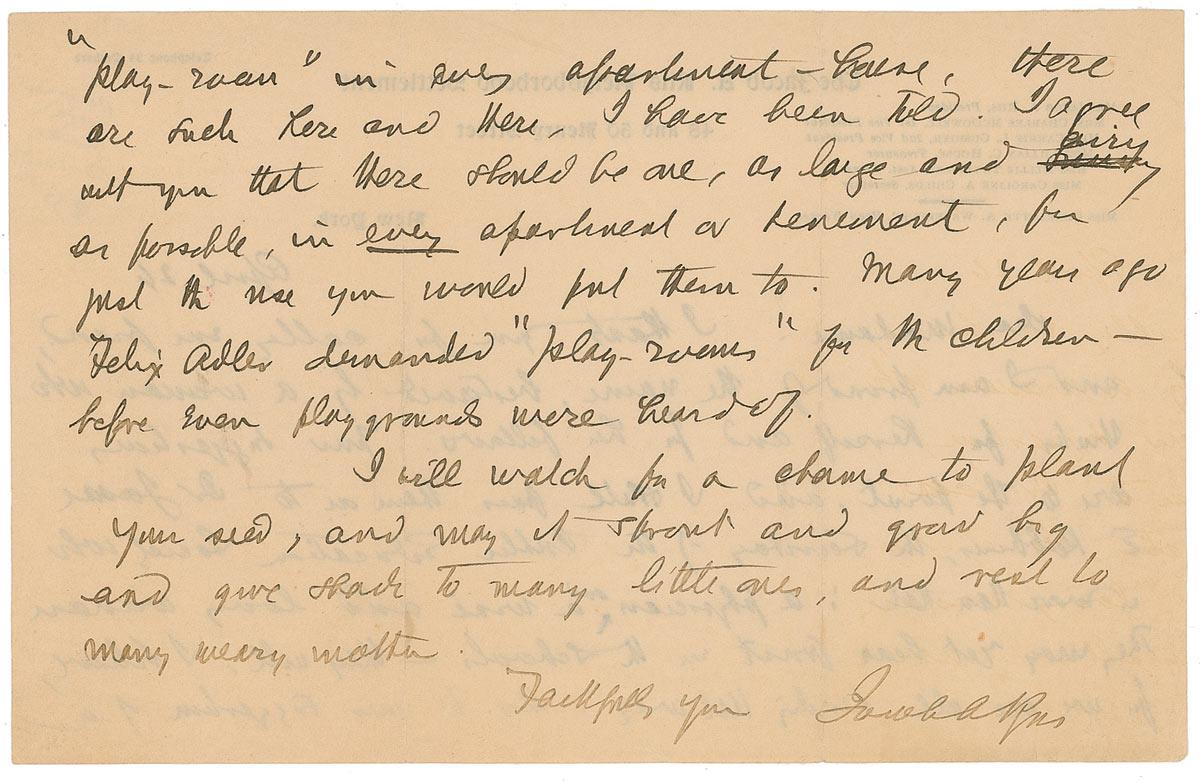 "play-room" in every apartment-house, there
are such here and there, I have been told I agree
with you that there should be one, as large and airy
as possible, in every apartment or tenement, for
just the use you would put them to. Many years ago
Felix Adler demanded "play-rooms" for the children —
before even playgrounds were heard of.
I will watch for a chance to plant
your seed, and may it sprout and grow big
and give shade to many little ones, and rest to
many weary mothers.
Faithfully yours Jacob A Riis